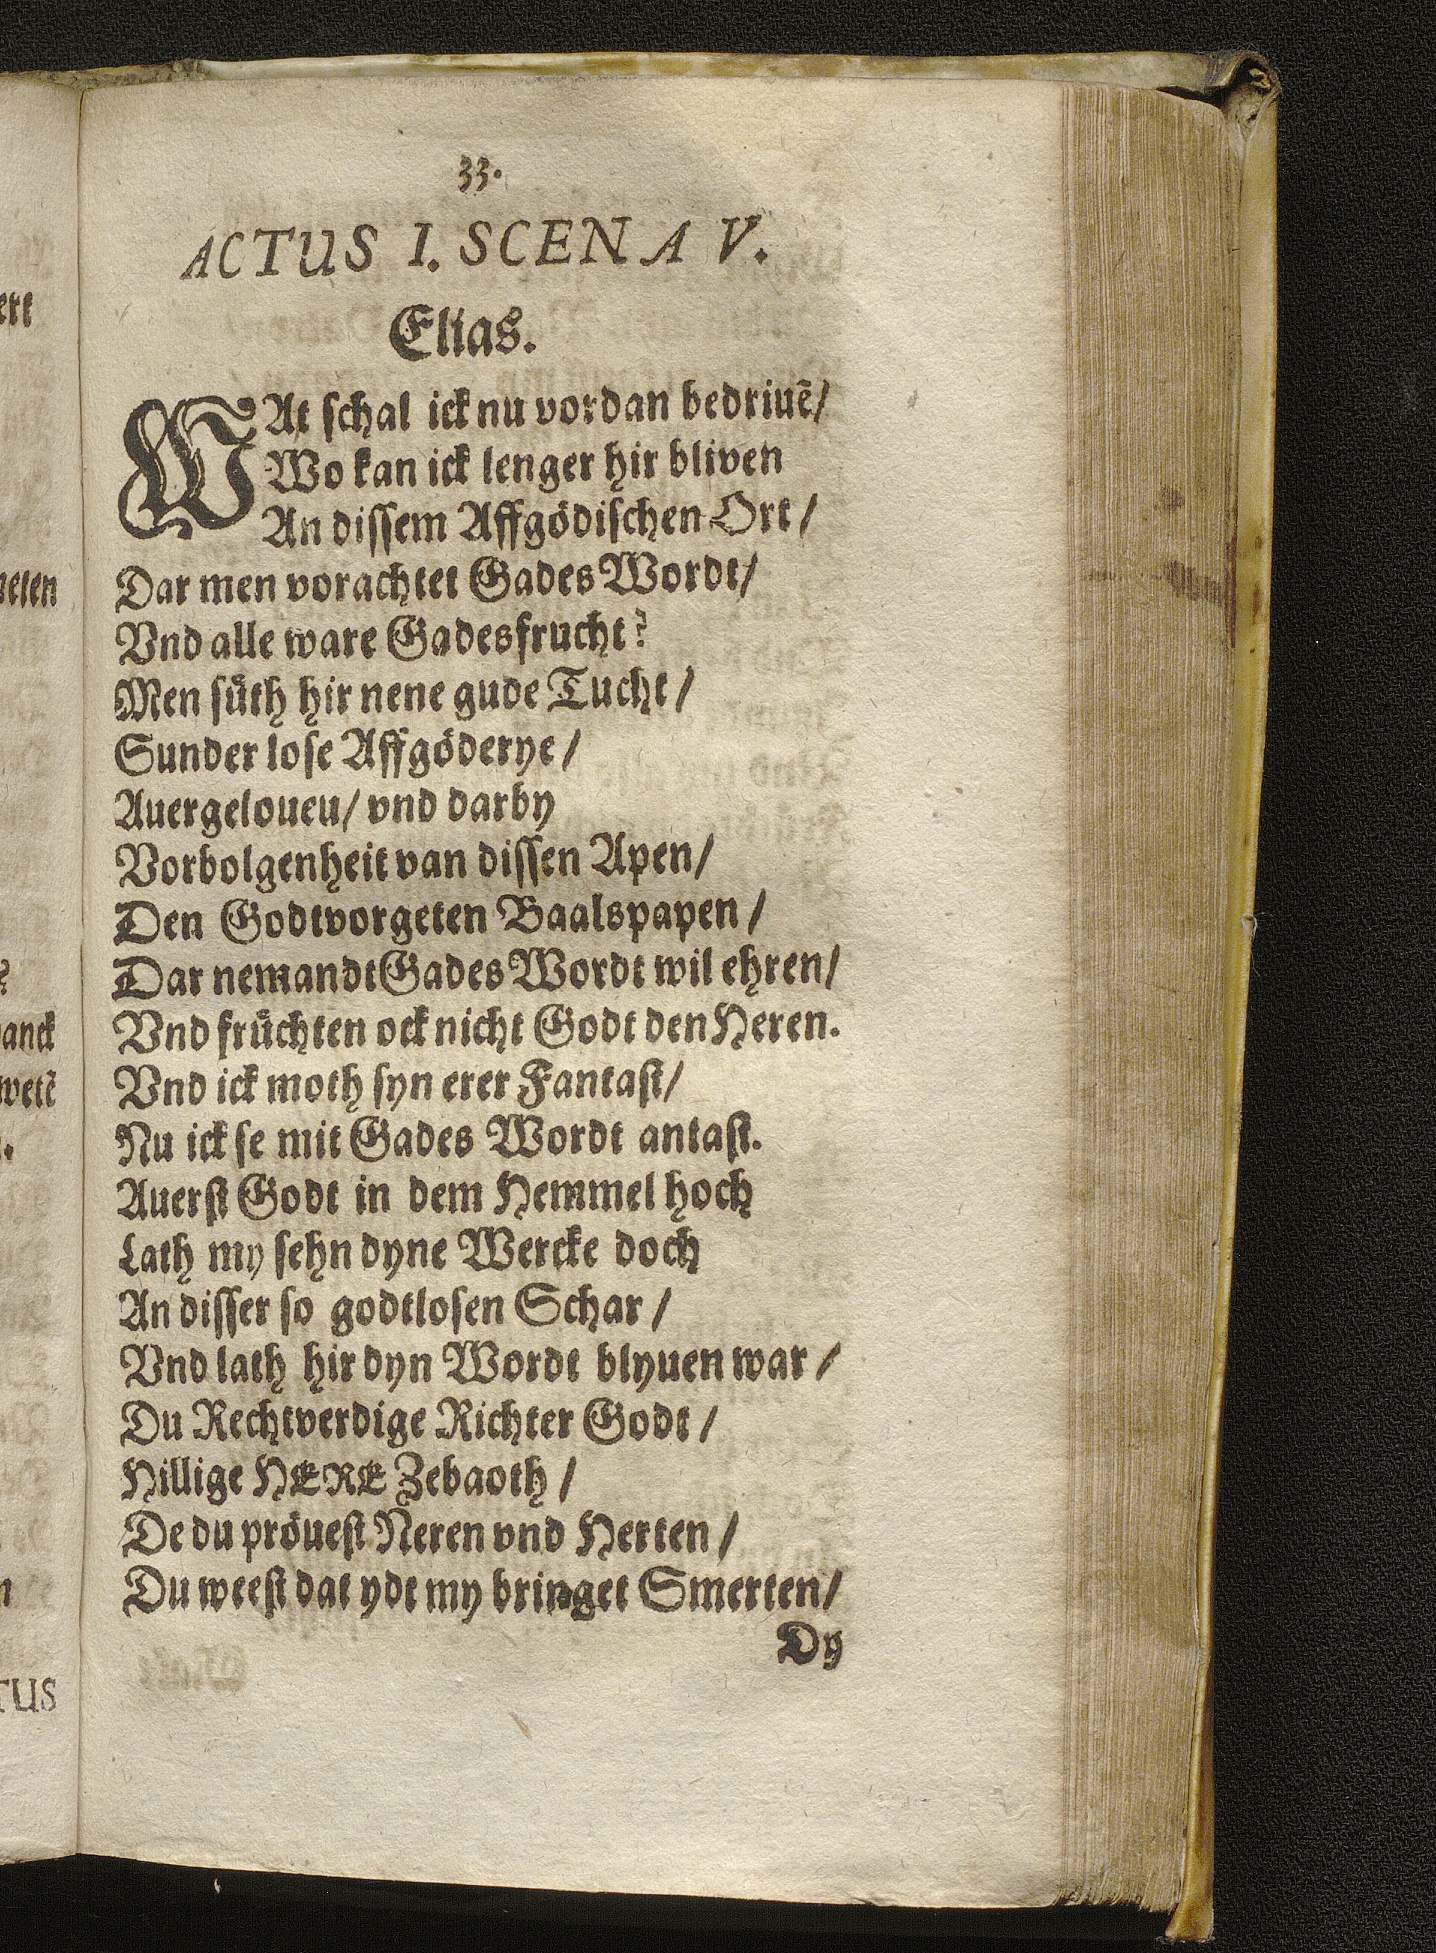 33.
ACTUS I. SCENA V.
Elias.
WAt schal ick nu vordan bedriuẽ/
Wo kan ick lenger hir bliven
An dissem Affgödischen Ort/
Dar men vorachtet Gades Wordt/
Vnd alle ware Gadesfrucht?
Men suͤth hir nene gude Tucht/
Sunder lose Affgöderye/
Auergeloueu/ vnd darby
Vorbolgenheit van dissen Apen/
Den Godtvorgeten Baalspapen/
Dar nemandt Gades Wordt wil ehren/
Vnd fruͤchten ock nicht Godt den Heren.
Vnd ick moth syn erer Fantast/
Nu ick se mit Gades Wordt antast.
Auerst Godt in dem Hemmel hoch
Lath my sehn dyne Wercke doch
An disser so godtlosen Schar/
Vnd lath hir dyn Wordt blyuen war/
Du Rechtverdige Richter Godt/
Hillige HERE Zebaoth/
De du pröuest Neren vnd Herten/
Du weest dat ydt my bringet Smerten/
Dy
ert
anck
wetẽ
TUS